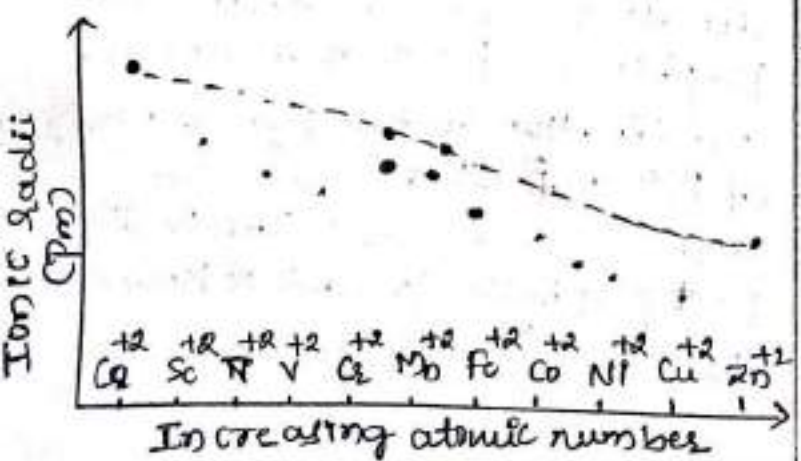 Ionic radii
(Pm)
Ca+2 Sc+2 Ti+2 V+2 Cr+2 Mn+2 Fe+2 Co+2 Ni+2 Cu+2 Zn+2
Increasing atomic number